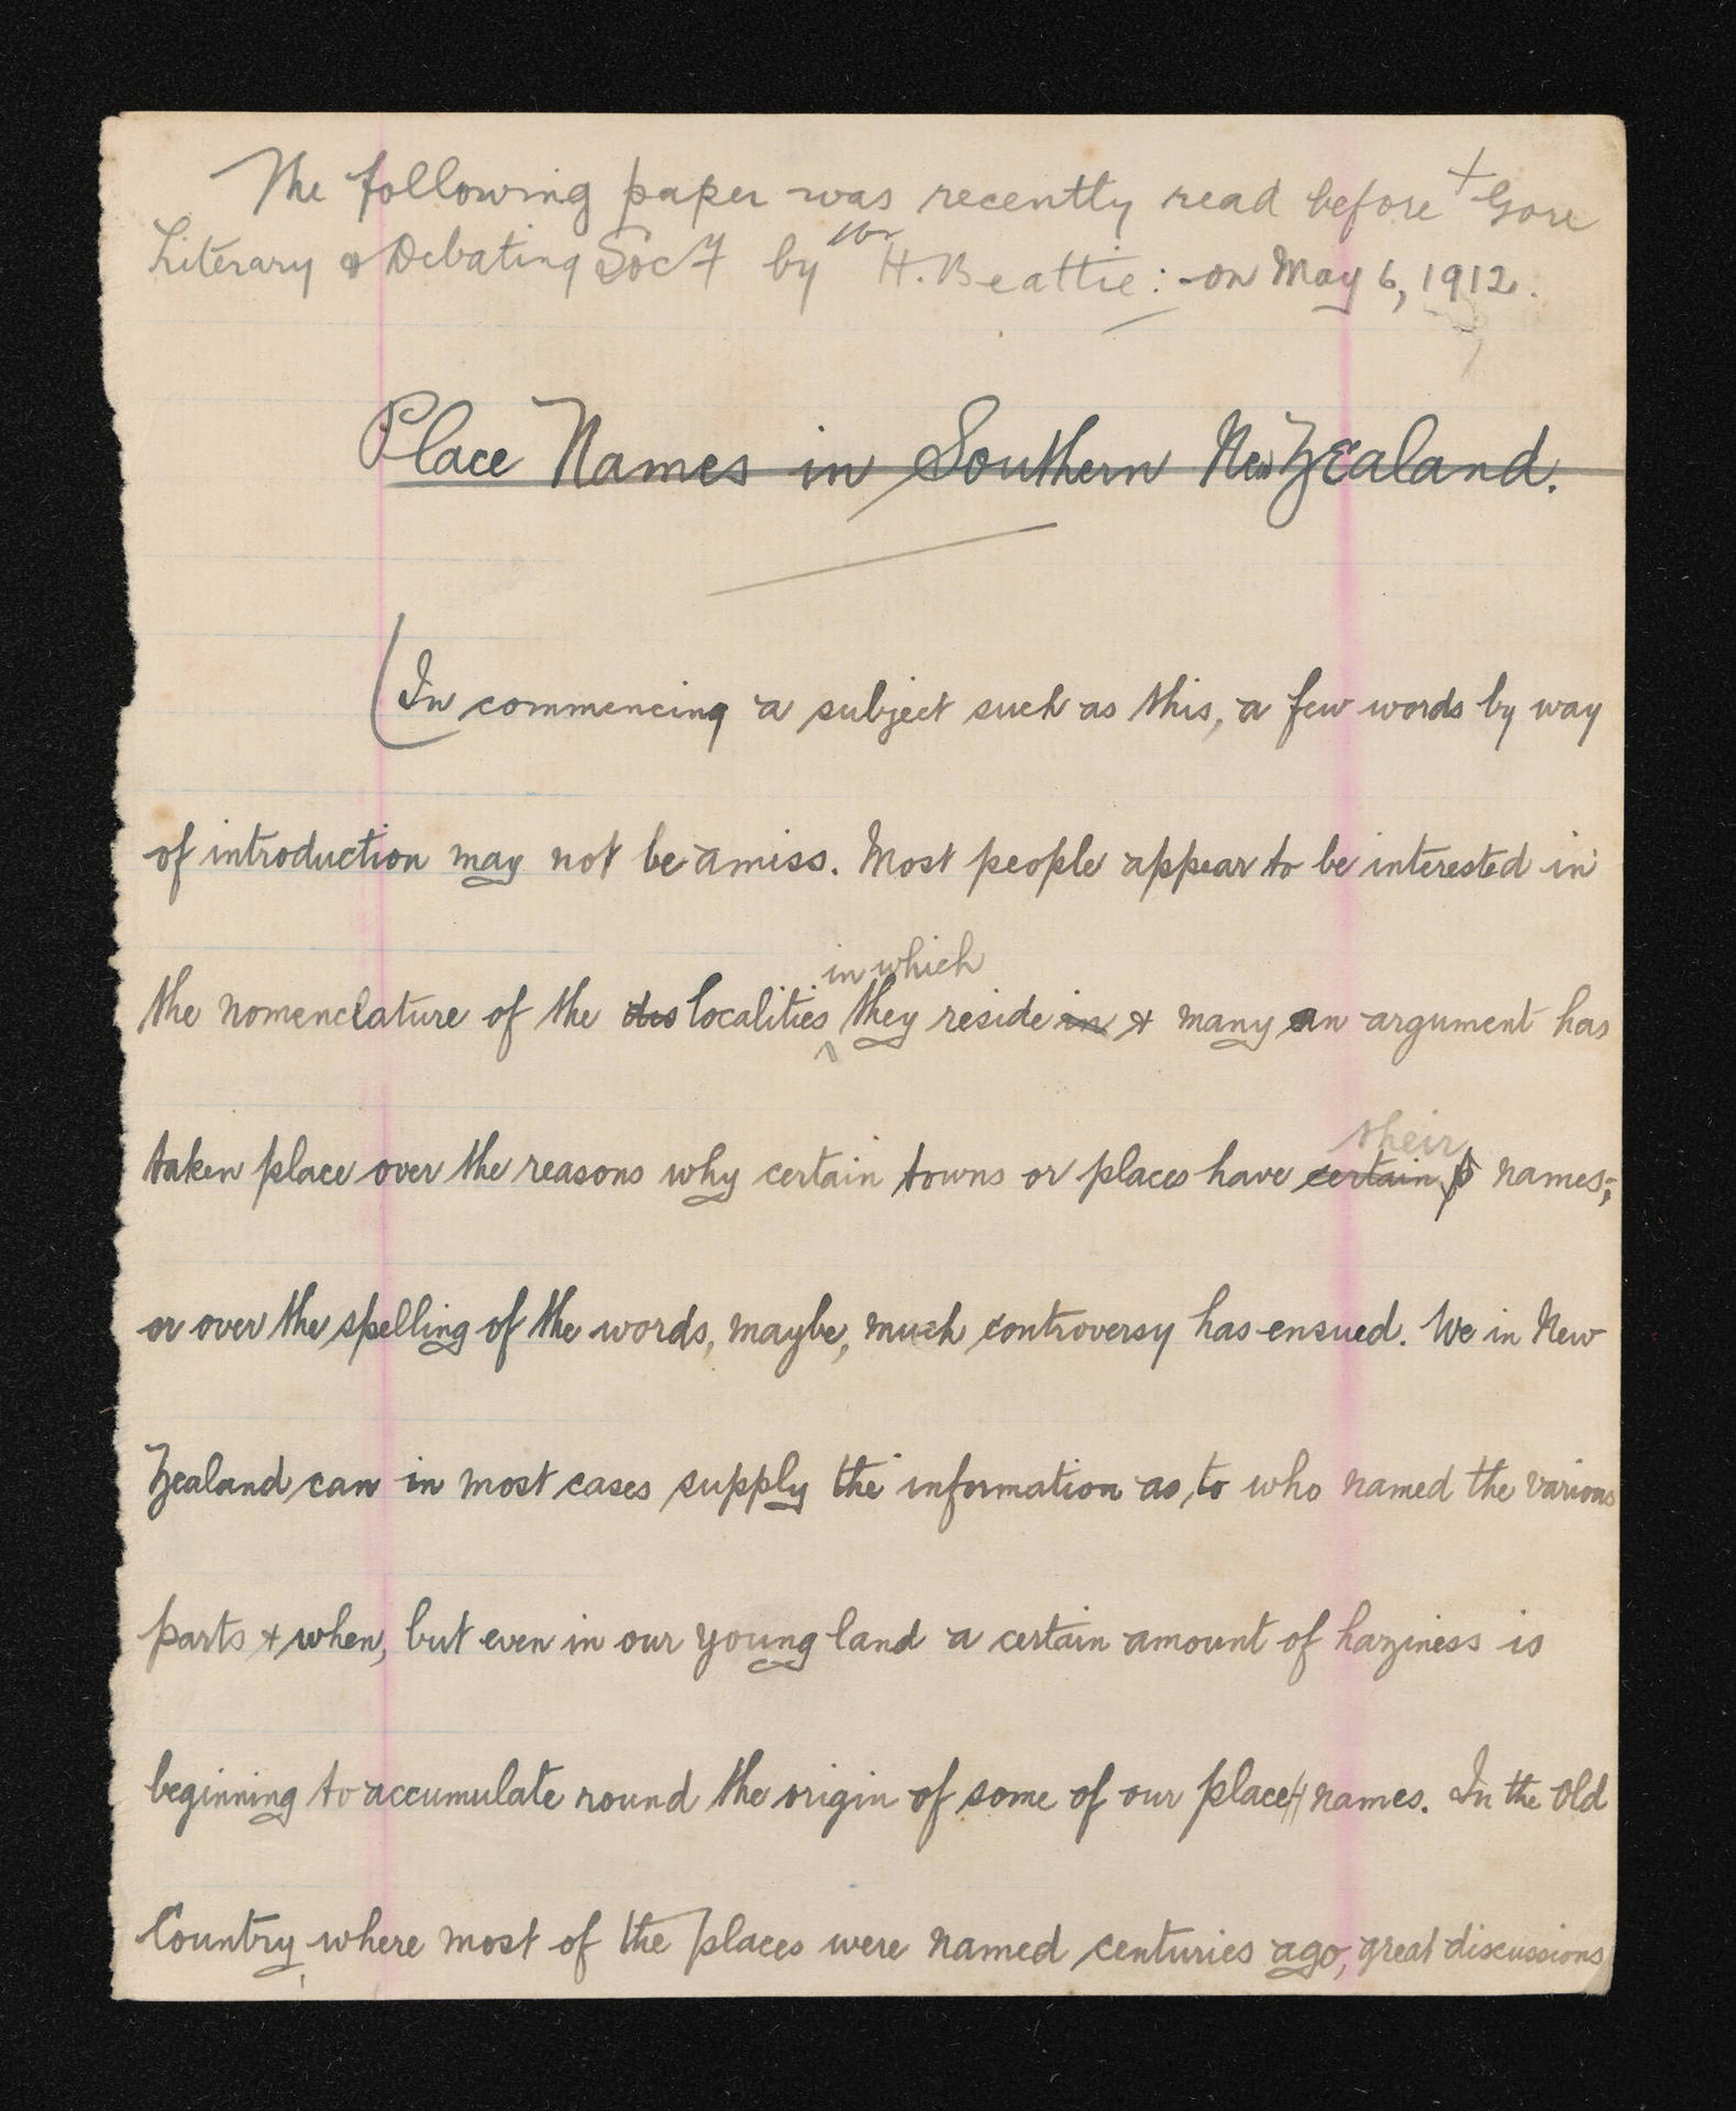 The following paper was recently read before + Gore
Literary & Debating Socy by Mr H. Beattie :- on May 6, 1912.
Place Names in Southern New Zealand.
(In commencing a subject such as this, a few words by way
of introduction may not be amiss. Most people appear to be interested in
in which
the nomenclature of the dis localities ^ they reside in & many an argument has
their
taken place over the reasons why certain towns or places have certain p names;
or over the spelling of the words, maybe, much controversy has ensued. We in New
Zealand can in most cases supply the information as, to who named the various
parts & when, but even in our young land a certain amount of haziness is
beginning to accumulate round the origin of some of our place names. In the Old
Country, where most of the places were named centuries ago, great discussions